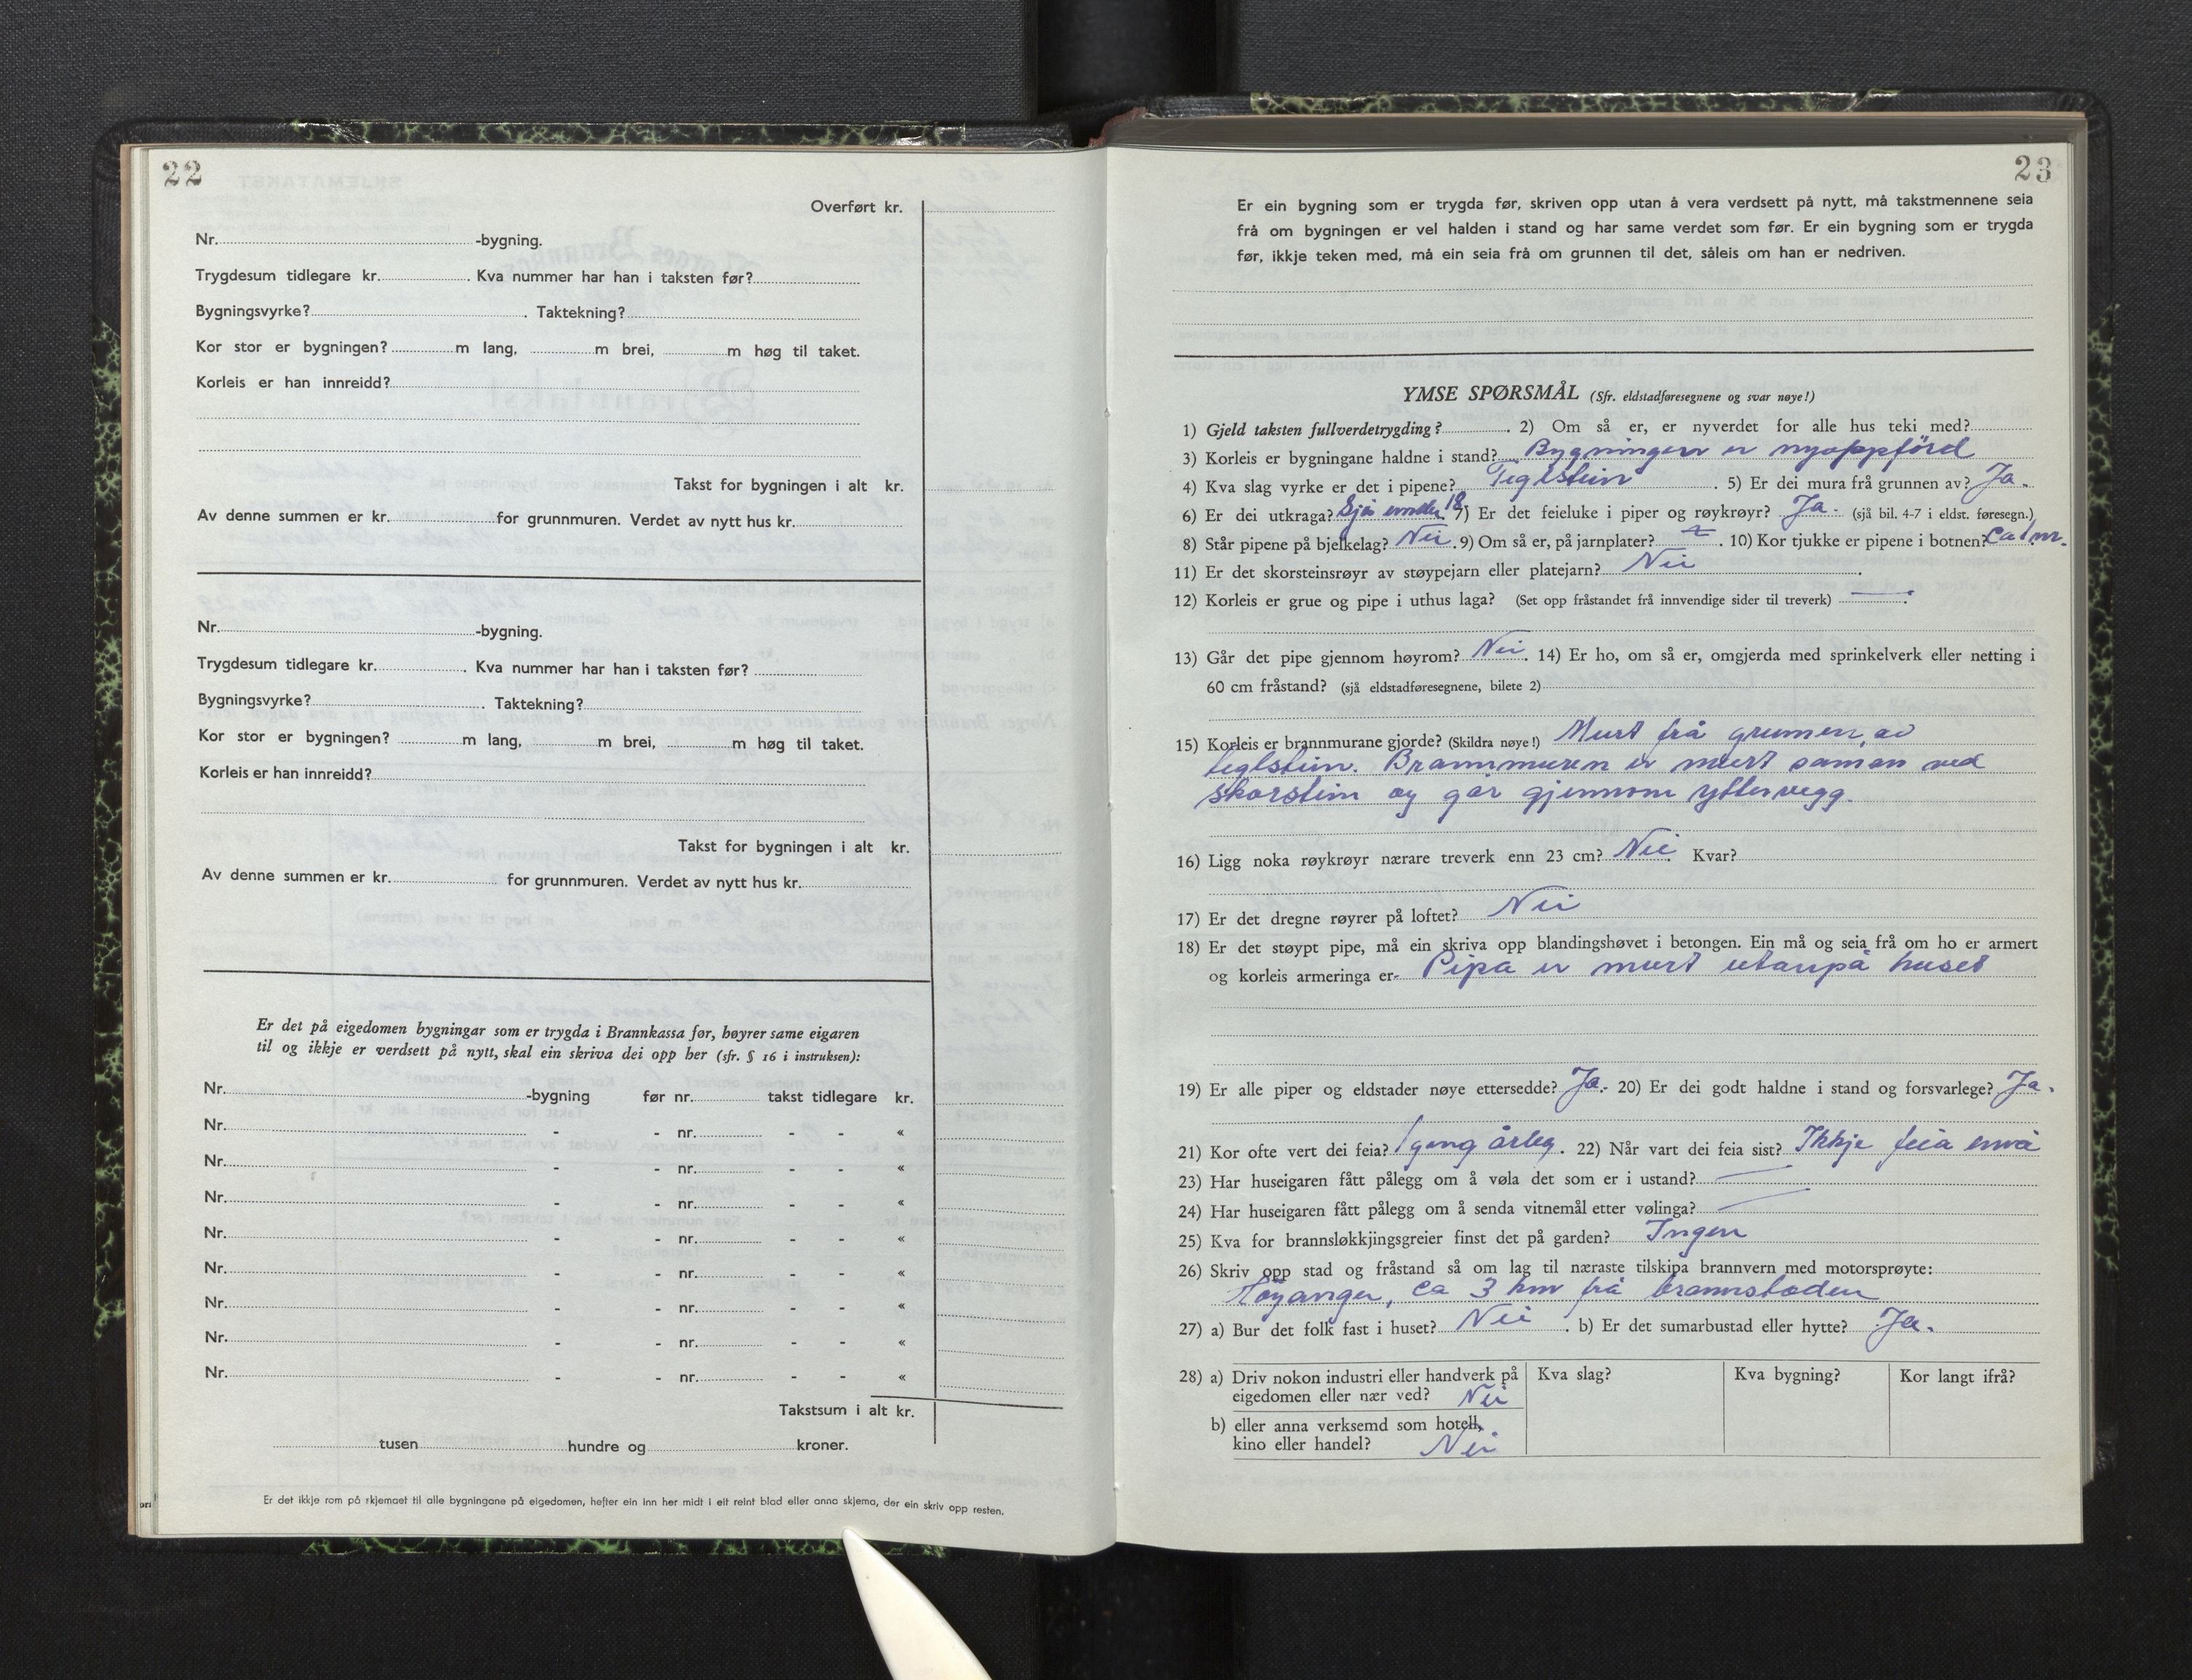 22
Overført kr.
Nr. -bygning.
Trygdesum tidlegare kr. . Kva nummer har han i taksten før?
Bygningsvyrke? . Taktekning?
Kor stor er bygningen? m lang, m brei, m høg til taket.
Korleis er han innreidd?
Takst for bygningen i alt kr.
Av denne summen er kr. for grunnmuren. Verdet av nytt hus kr.
Nr. -bygning.
Trygdesum tidlegare kr. . Kva nummer har han i taksten før?
Bygningsvyrke? . Taktekning?
Kor stor er bygningen? m lang, m brei, m høg til taket.
Korleis er han innreidd?
Takst for bygningen i alt kr.
Av denne summen er kr. for grunnmuren. Verdet av nytt hus kr.
Er det på eigedomen bygningar som er trygda i Brannkassa før, høyrer same eigaren
til og ikkje er verdsett på nytt, skal ein skriva dei opp her (sfr. § 16 i instruksen):
Nr. -bygning før nr. takst tidlegare kr.
Nr. - - nr. - - «
Nr. - - nr. - - «
Nr. - - nr. - - «
Nr. - - nr. - - «
Nr. - - nr. - - «
Nr. - - nr. - - «
Nr. - - nr. - - «
Nr. - - nr. - - «
Takstsum i alt kr.
tusen hundre og kroner.
Er det ikkje rom på skjemaet til alle bygningane på eigedomen, hefter ein inn her midt i eit reint blad eller anna skjema, der ein skriv opp resten.
23
Er ein bygning som er trygda før, skriven opp utan å vera verdsett på nytt, må takstmennene seia
frå om bygningen er vel halden i stand og har same verdet som før. Er ein bygning som er trygda
før, ikkje teken med, må ein seia frå om grunnen til det, såleis om han er nedriven.
YMSE SPØRSMÅL (Sfr. eldstadføresegnene og svar nøye!)
1) Gjeld taksten fullverdetrygding? . 2) Om så er, er nyverdet for alle hus teki med?
3) Korleis er bygningane haldne i stand? Bygningen er nyoppförd
4) Kva slag vyrke er det i pipene? Teglstein . 5) Er dei mura frå grunnen av? Ja.
6) Er dei utkraga? Sjå under 18 7) Er det feieluke i piper og røykrøyr? Ja. (sjå bil. 4-7 i eldst. føresegn.)
8) Står pipene på bjelkelag? Nei. 9) Om så er, på jarnplater? . 10) Kor tjukke er pipene i botnen? Ca 1 m.
11) Er det skorsteinsrøyr av støypejarn eller platejarn? Nei .
12) Korleis er grue og pipe i uthus laga? (Set opp fråstandet frå innvendige sider til treverk) — .
13) Går det pipe gjennom høyrom? Nei. 14) Er ho, om så er, omgjerda med sprinkelverk eller netting i
60 cm fråstand? (sjå eldstadføresegnene, bilete 2)
15) Korleis er brannmurane gjorde? (Skildra nøye!) Murt frå grunnen av
teglstein. Brannmuren er murt saman ved
skorstein og går gjennom yttervegg.
16) Ligg noka røykrøyr nærare treverk enn 23 cm? Nei. Kvar?
17) Er det dregne røyrer på loftet? Nei
18) Er det støypt pipe, må ein skriva opp blandingshøvet i betongen. Ein må og seia frå om ho er armert
og korleis armeringa er. Pipa er murt utanpå huset
19) Er alle piper og eldstader nøye ettersedde? Ja. 20) Er dei godt haldne i stand og forsvarlege? Ja.
21) Kor ofte vert dei feia? 1 gang årleg. 22) Når vart dei feia sist? Ikkje feia ennå
23) Har huseigaren fått pålegg om å vøla det som er i ustand? —
24) Har huseigaren fått pålegg om å senda vitnemål etter vølinga? —
25) Kva for brannsløkkjingsgreier finst det på garden? Ingen
26) Skriv opp stad og fråstand så om lag til næraste tilskipa brannvern med motorsprøyte:
Høyanger, ca 3 km frå brannstaden
27) a) Bur det folk fast i huset? Nei . b) Er det sumarbustad eller hytte? Ja.
28) a) Driv nokon industri eller handverk på Kva slag? Kva bygning? Kor langt ifrå?
eigedomen eller nær ved? Nei
b) eller anna verksemd som hotell,
kino eller handel? Nei